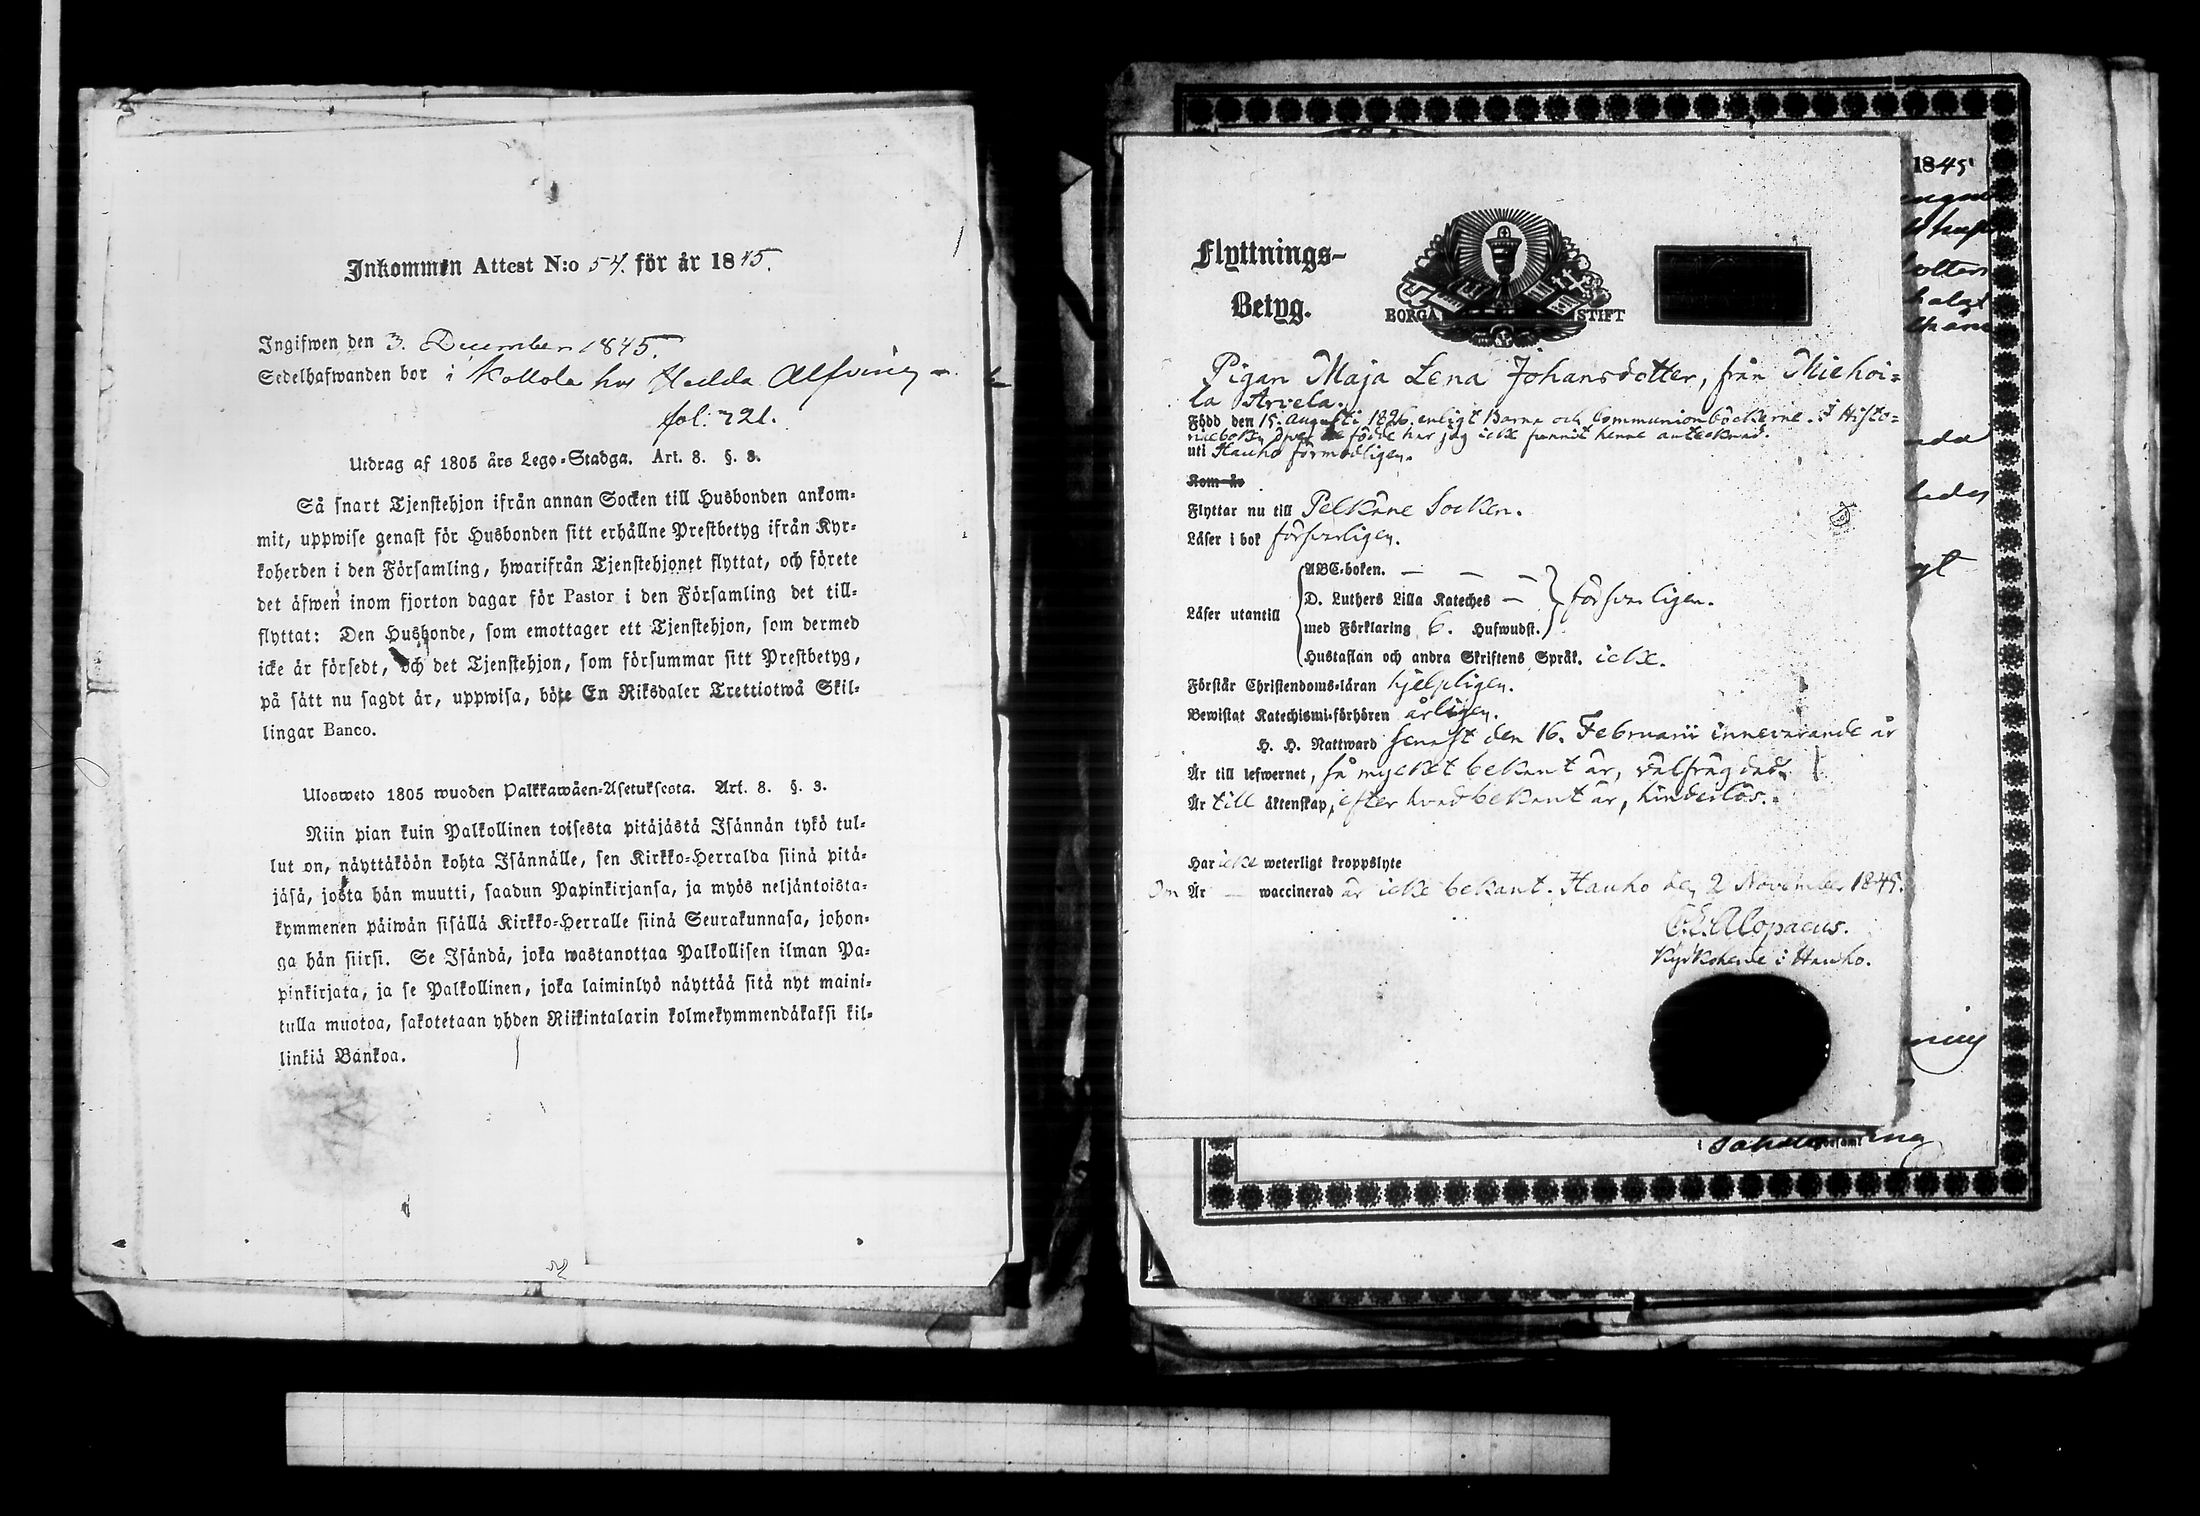 Inkommen Attest N:o 54. för år 1845.
Ingifwen den 3. December 1845.
Sedelhafwanden bor i Kollola hos Hedda Alfving
fol: 721.
Utdrag af 1805 års Lego-Stadga. Art. 8. §. 3.
Så snart Tjenstehjon ifrån annan Socken till Husbonden ankom-
mit, uppwise genast för Husbonden sitt erhållne Prestbetyg ifrån Kyr-
koherden i den Församling, hwarifrån Tjenstehjonet flyttat, och förete
det äfwen inom fjorton dagar för Pastor i den Församling det till-
flyttat: Den Husbonde, som emottager ett Tjenstehjon, som dermed
icke är försedt, och det Tjenstehjon, som försummar sitt Prestbetyg,
på sätt nu sagdt är, uppwisa, böte En Riksdaler Trettiotwå Skil-
lingar Banco.
Ulosweto 1805 wuoden Palkkawäen-Asetuksesta. Art. 8. §. 3.
Niin pian kuin Palkollinen toisesta pitäjästä Isännän tykö tul-
lut on, näyttäköön kohta Isännälle, sen Kirkko-Herralda siinä pitä-
jäsä, josta hän muutti, saadun Papinkirjansa, ja myös neljäntoista-
kymmenen päiwän sisällä Kirkko-Herralle siinä Seurakunnasa, johon-
ga hän siirsi. Se Isändä, joka wastanottaa Palkollisen ilman Pa-
pinkirjata, ja se Palkollinen, joka laiminlyö näyttää sitä nyt maini-
tulla muotoa, sakotetaan yhden Riikintalarin kolmekymmendäkaksi kil-
linkiä Bankoa.
Flyttnings-
Betyg.
BORGÅ STIFT
Pigan Maja Lena Johansdotter, från Miehoi-
la Arvela.
Född den 15. Augusti 1826. enligt Barna och Communionböckerne. I Histo-
rieboken öfver de födde har jag icke funnit henne antecknad.
uti Hauho förmodligen.
Kom år
Flyttar nu till Pelkäne Socken.
Läser i bok försvarligen.
ABC-boken. — — —
D. Luthers Lilla Kateches —
Läser utantill försvarligen.
med Förklaring 6. Hufwudst.
Hustaflan och andra Skriftens Språk. icke.
Förstår Christendoms-läran hjelpligen.
Bewistat Katechismi-förhören årligen.
H. H. Nattward senast den 16. Februarii innevarande år
Är till lefwernet, så mycket bekant är, välfrägdad.
Är till äktenskap, efter hvad bekant är, hinderlös.
Har icke weterligt kroppslyte
Om Är — waccinerad är icke bekant. Hauho den 2 November 1845.
Alopaeus.
Kyrkoherde i Hauho.
1845